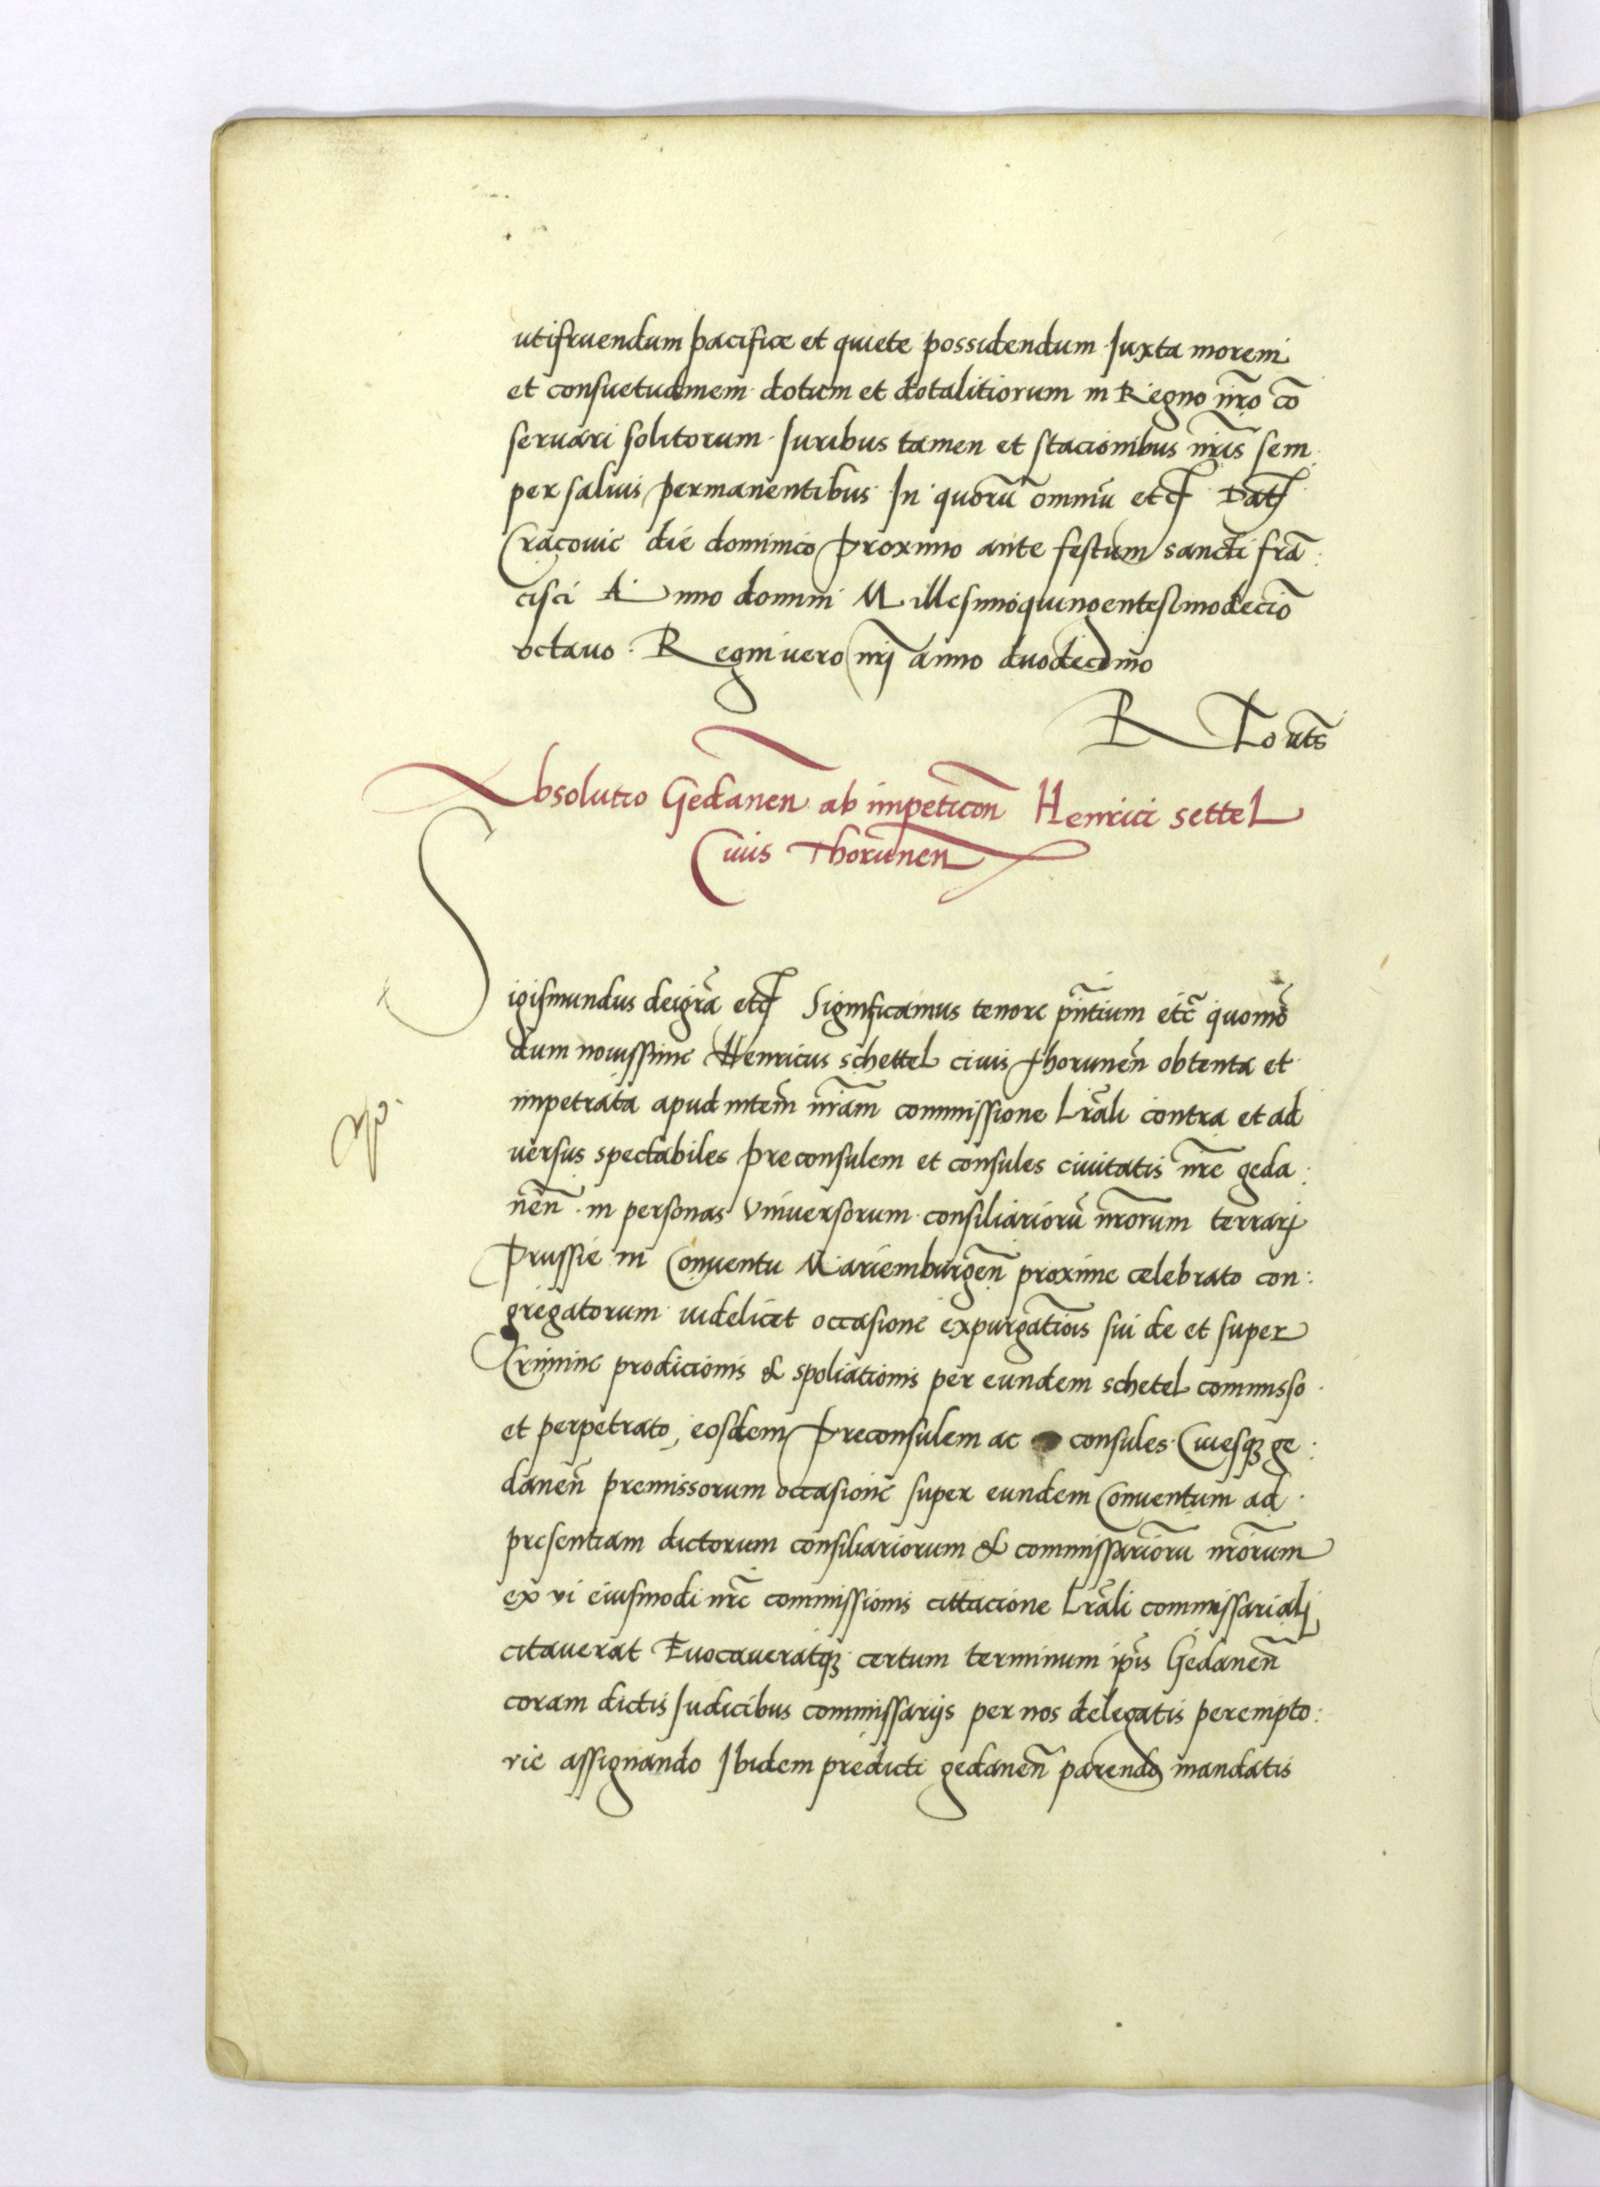 utifruendum pacifice et quiete possidendum Juxta morem
et consuetudinem dotium et dotalitiorum in Regno nr̃o cõ
seruari solitorum. Juribus tamen et stacionibus nr̃is sem
per saluis permanentibus In quorũ omniũ etc̃ Dat̃
Cracouie die dominico proximo ante festum sancti frã:
cisci Anno domini Millesimoquingentesimodecĩo
octauo. Regni vero nr̃i anno duodecimo
R
Absolutio Gedanen̄ ab impeticon̄ Henrici settel
Ciuis Thorunen̄
Sigismundus dei gr̃a etc̃ Significamus tenore p̃ntium etc̃ quomõ
dum nouissime Henricus schettel ciuis Thorunen̄ obtenta et
impetrata apud mtem̃ nr̃am commissione Lr̃ali contra et ad
uersus spectabiles preconsulem et consules ciuitatis nr̃e geda:
nen̄. in personas Vniuersorum consiliariorũ nr̃orum terrarj
Prussie in Conuentu Mariemburgen̄ proxime celebrato con:
gregatorum videlicet occasione expurgatiõis sui de et super
Crimine prodicionis & spoliationis per eundem schetel commisso
et perpetrato, eosdem Preconsulem ac consules. Ciuesqȝ ge:
danen̄ premissorum occasione super eundem Conuentum ad
presentiam dictorum consiliariorum & commissariorũ nr̃orum
ex vi eiusmodi nr̃e commissionis cittacione Lr̃ali commissarialj
citauerat Euocaueratqȝ certum terminum ip̃is Gedanen̄
coram dictis Judicibus commissarijs per nos delegatis perempto:
rie assignando Jbidem predicti gedanen̄ parendo mandatis